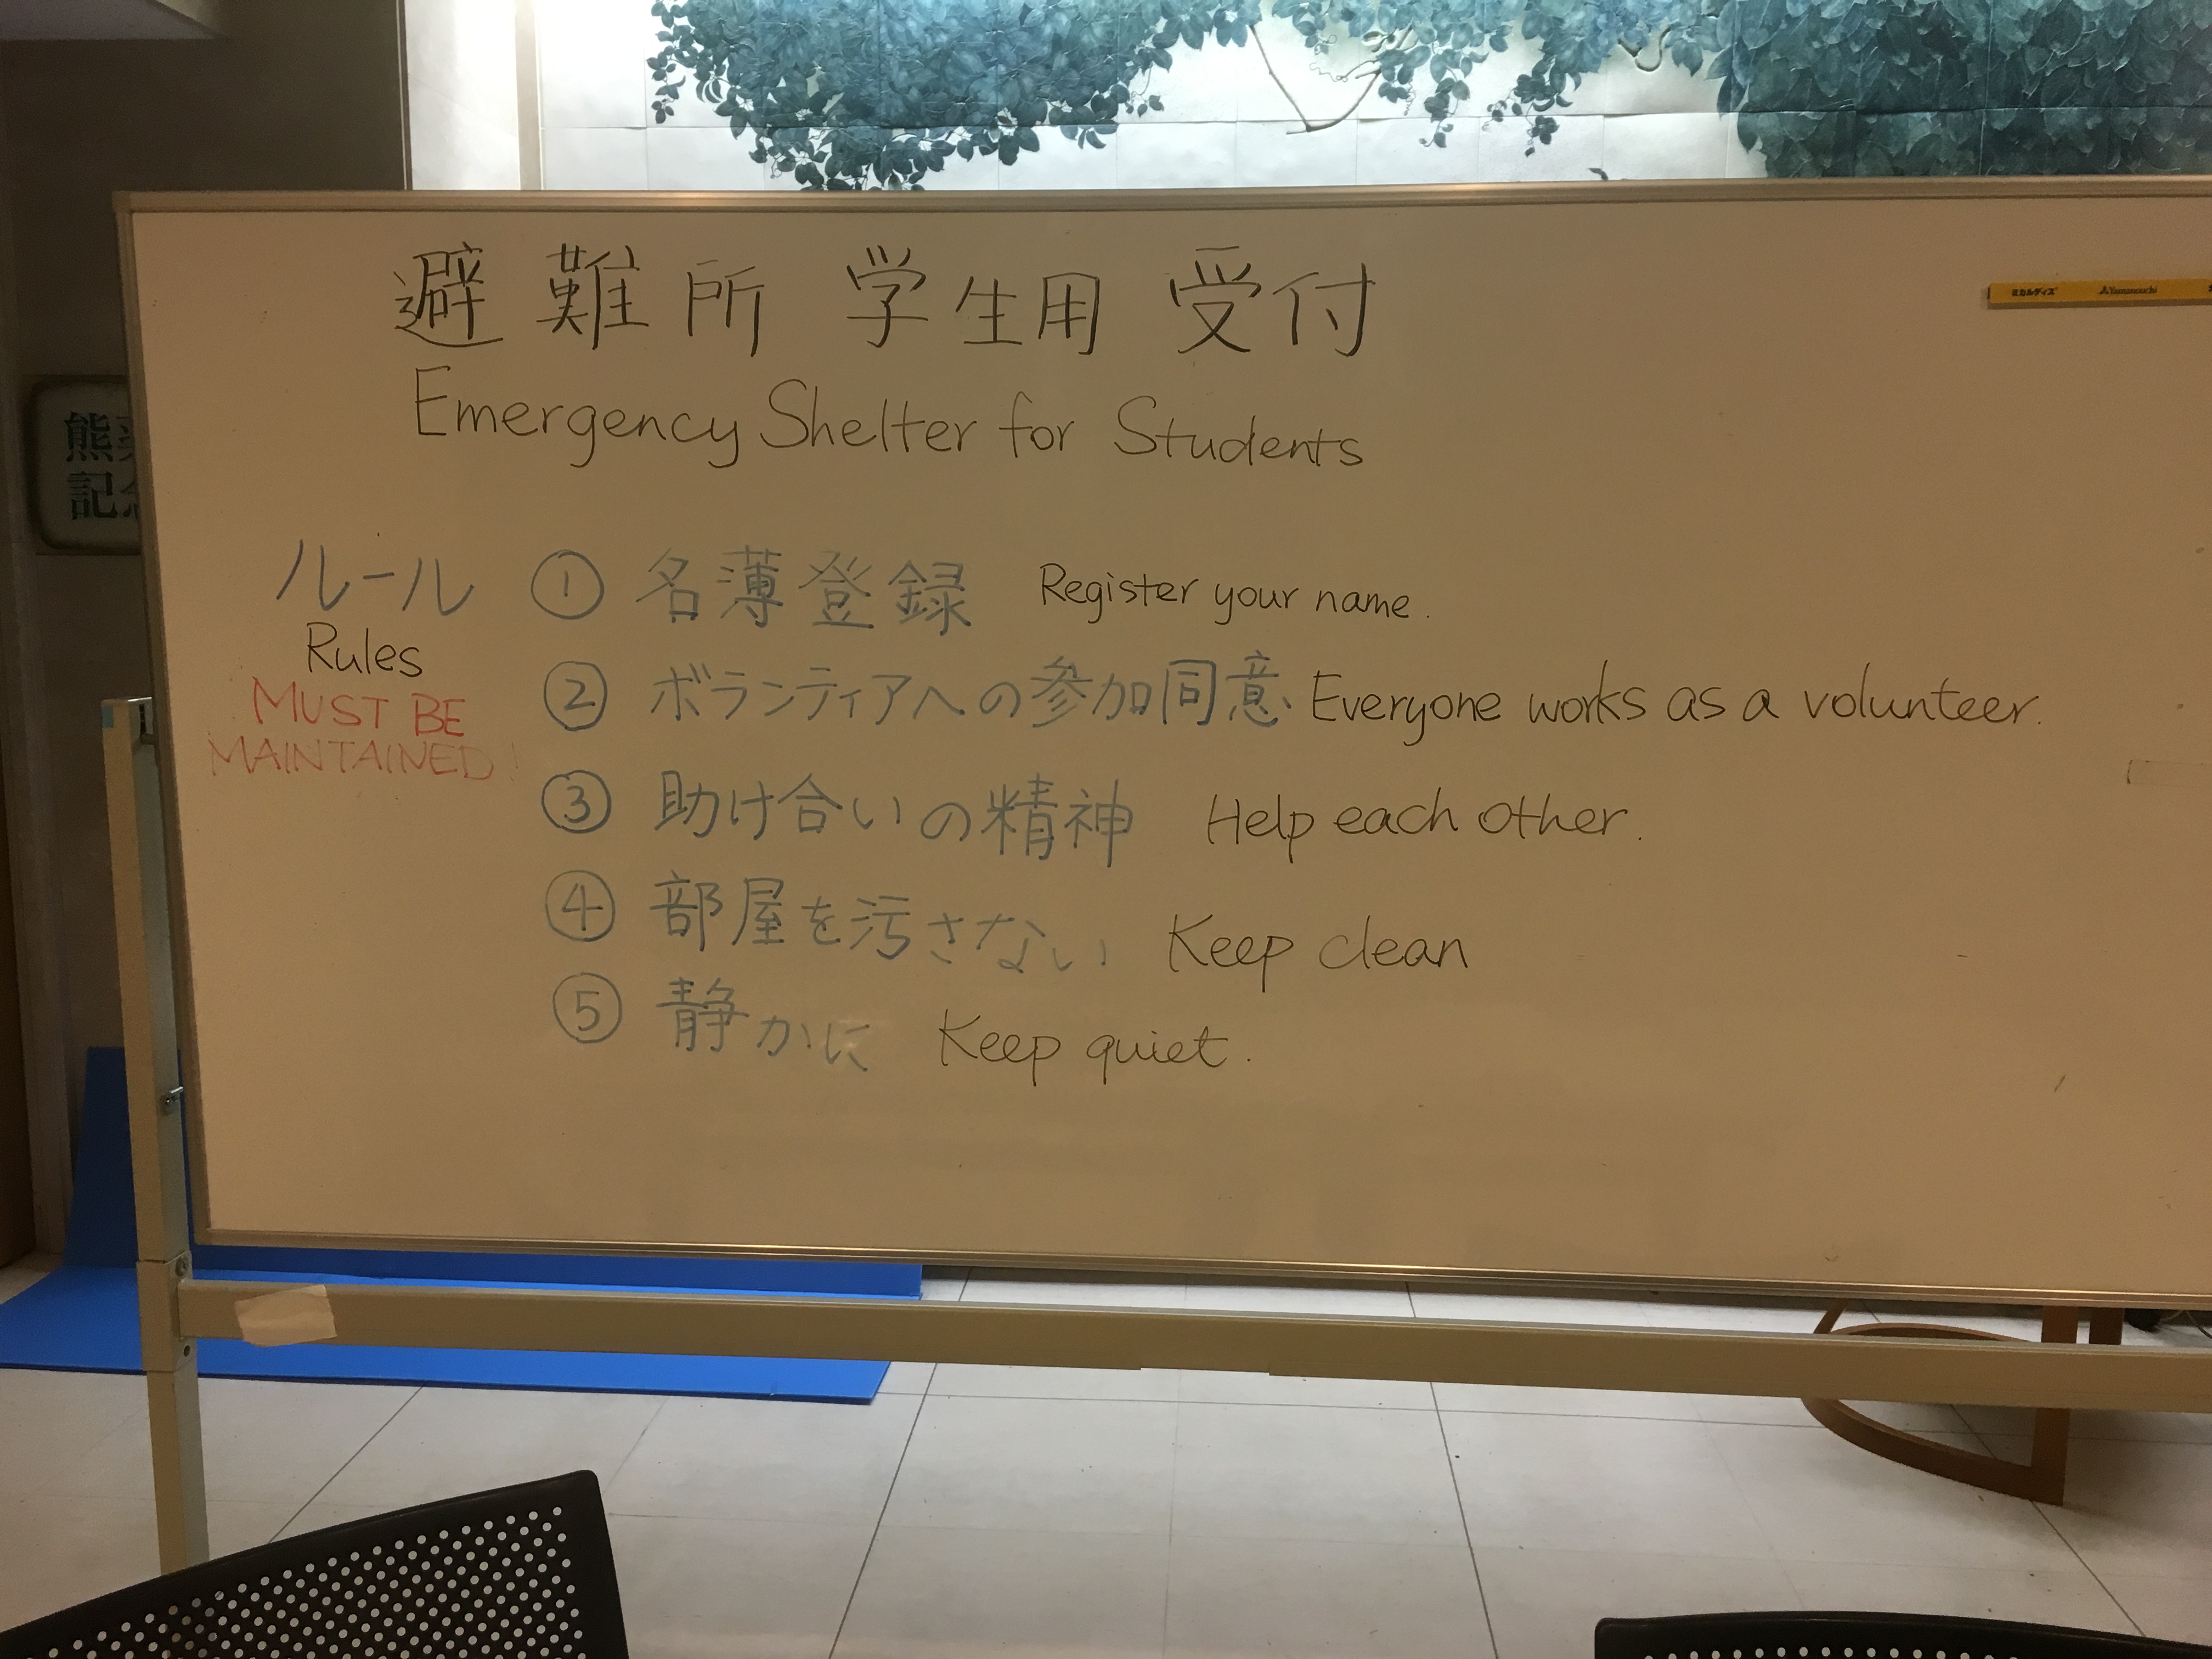 避難所 学生用 受付
Emergency Shelter for Students
ルール
Rules
MUST BE
MAINTAINED!
① 名薄登録 Register your name.
② ボランティアへの参加同意 Everyone works as a volunteer.
③ 助け合いの精神 Help each other.
④ 部屋を汚さない Keep clean
⑤ 静かに Keep quiet.
熊
記